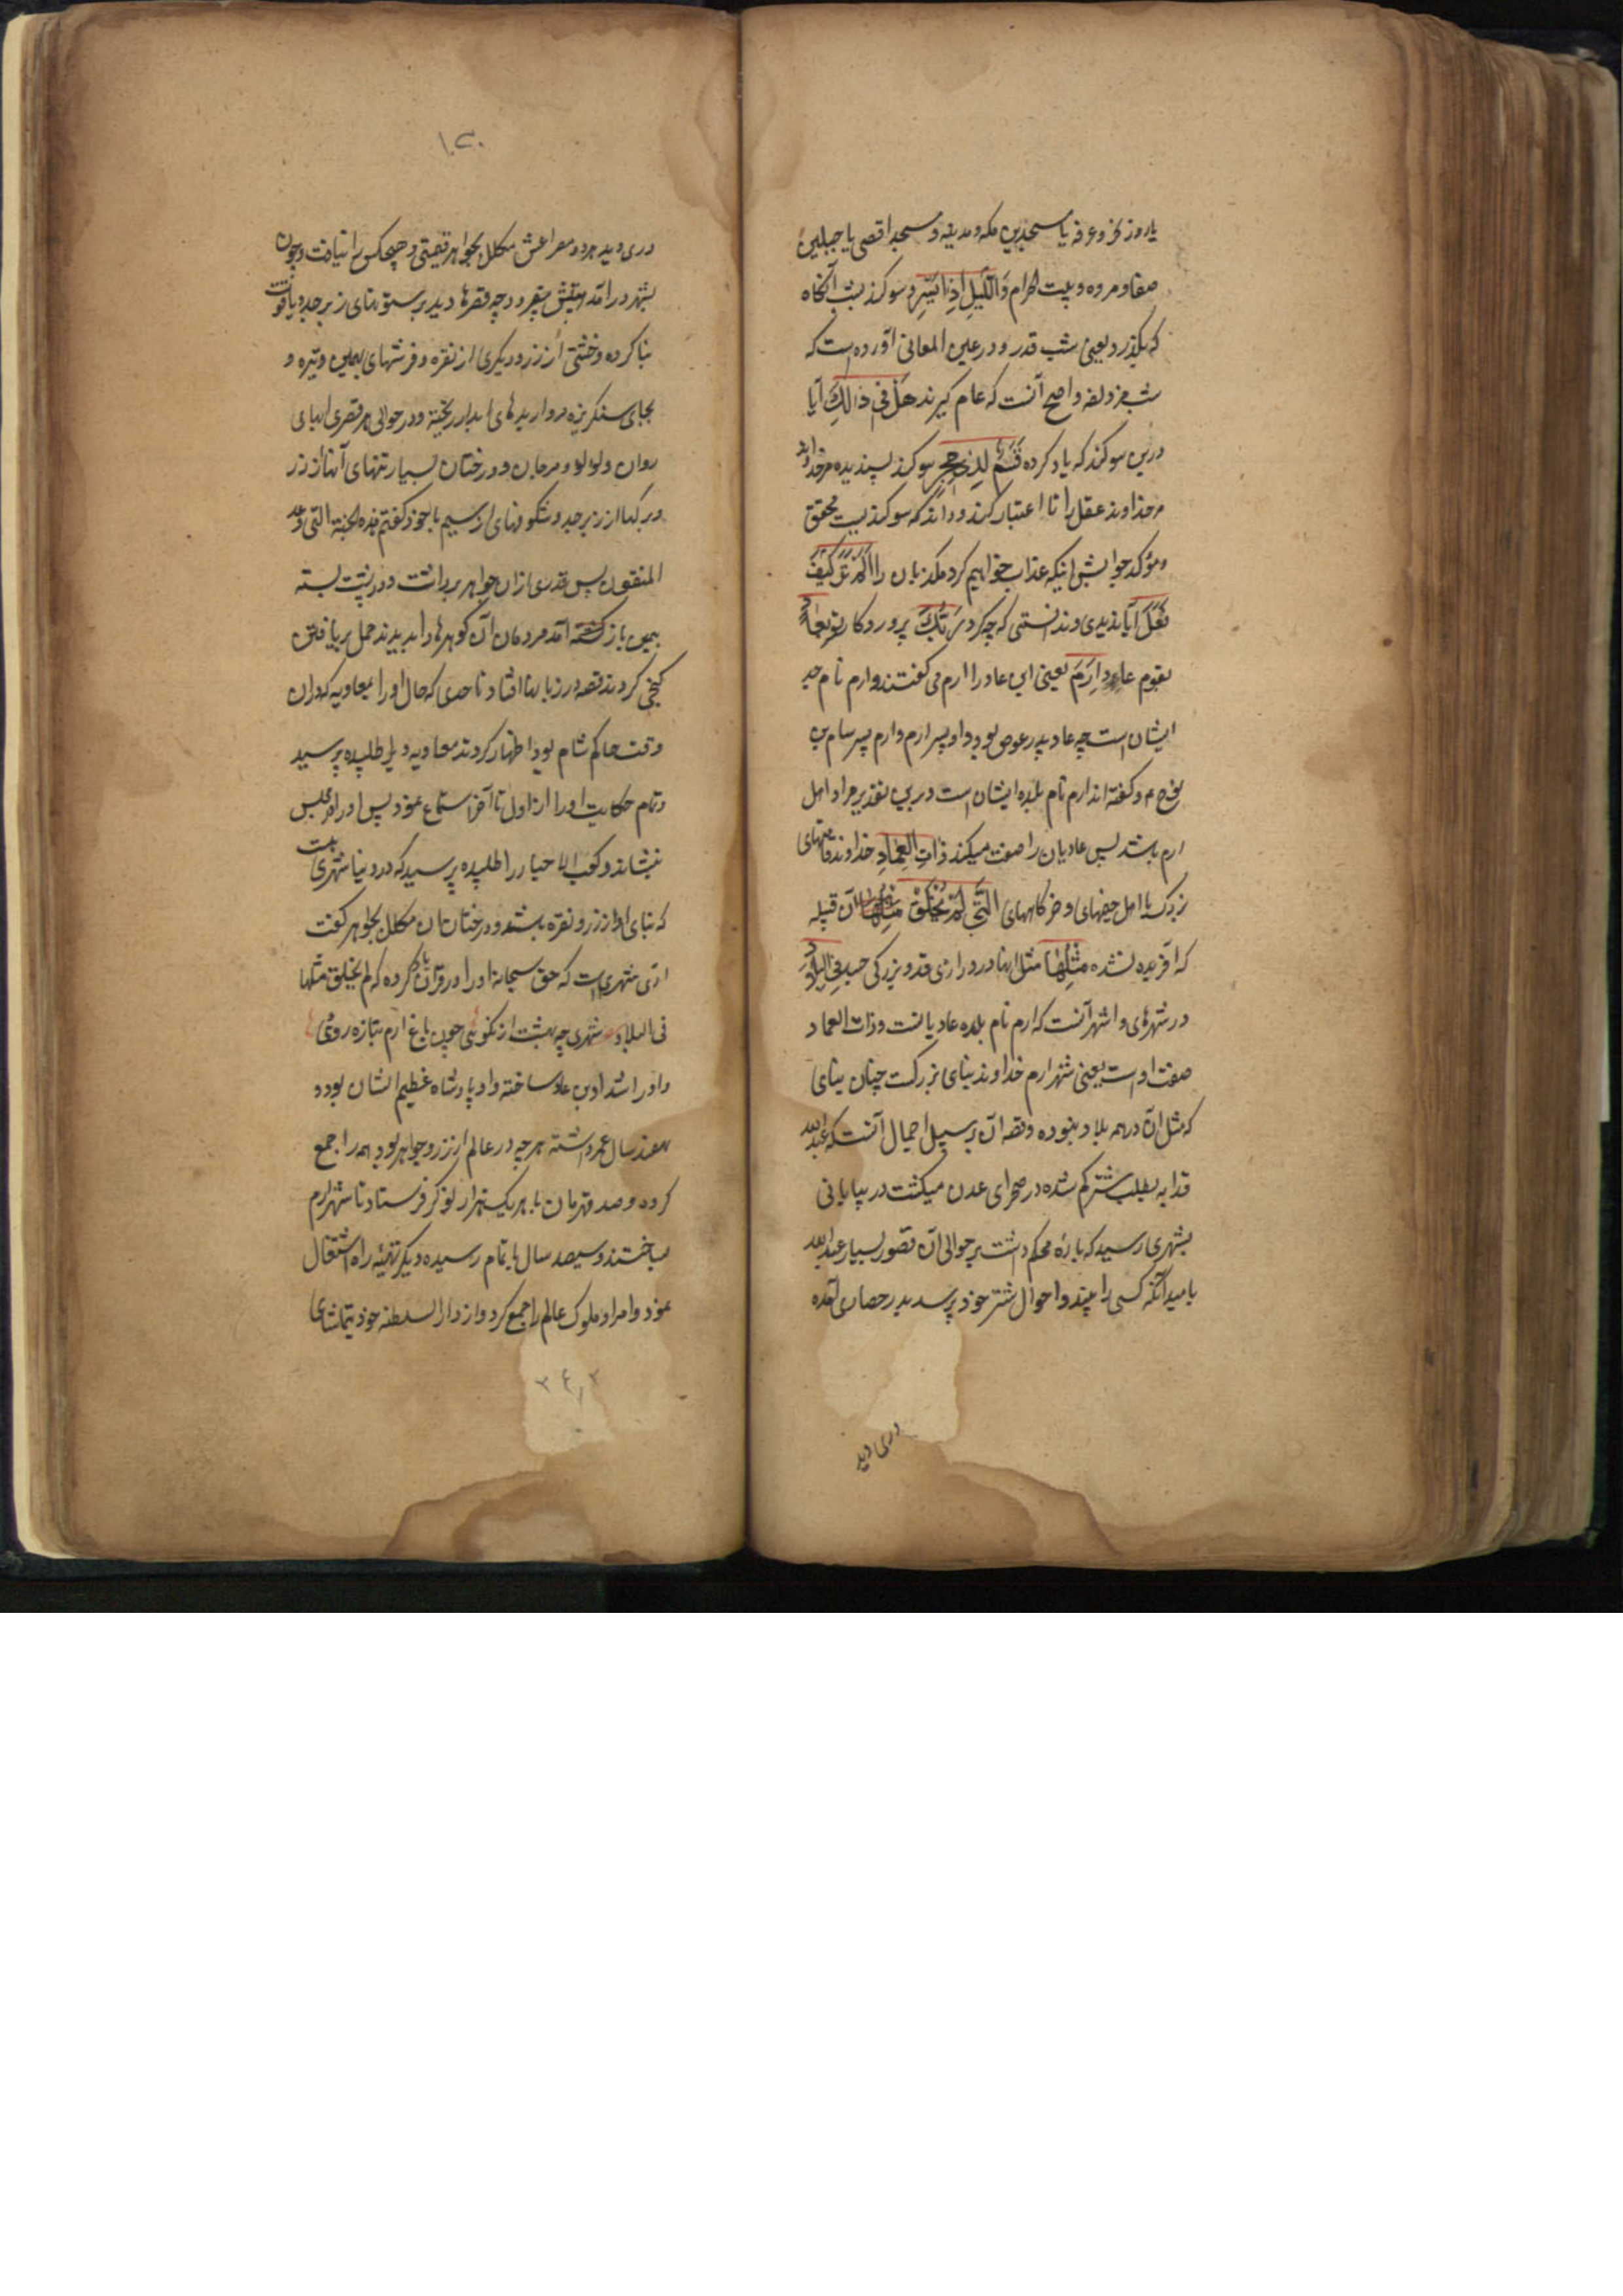 یا روز نحر و عرفه یا مسجدین مکه و مدینه و مسجد اقصی یا جبلین
صفا و مروه و بیت الحرام وَاللَّیلِ اِذا یَسْرِ و سوکند بشب آنکاه
که بکذرد یعنی شب قدر و در عین المعانی آورده است که
شب مزدلفه و اصح آنست که عام کیرند هَلْ فی ذالِکَ آیا
درین سوکند که یاد کرده قَسَمٌ لِذِی حِجْرٍ سوکند پسندیده مر خداوند
مر خداوند عقل را تا اعتبار کند و داند که سوکندیست محقق
و مؤکد جوابش اینکه عذاب خواهیم کرد مکذبان را اَلَمْ تَرَ کَیْفَ
فَعَلَ آیا ندیدی و ندانستی که چه کرد رَبُّکَ پروردکار تو بِعادٍ
بقوم عاد اِرَمَ یعنی این عاد را ارم می کفتند و ارم نام جد
ایشان است چه عاد پدر عوص بود و او پسر ارم و ارم پسر سام بن
نوح م و کفته اند ارم نام بلده ایشان است درین تقدیر مراد اهل
ارم باشد پس عادیان را صفت میکند ذاتِ العِمادِ خداوند قامتهای
بزرک یا اهل خیمهای و خرکاههای الَّتی لَمْ یُخْلَقْ آن قبیله
که آفریده نشده مِثْلُها مثل اینها در درازی قد و بزرکی جسد فِی البِلادِ
در شهرهای و اشهر آنست که ارم نام بلده عادیانست و ذات العماد
صفت اوست یعنی شهر ارم خداوند بنای بزرکست چنان بنای
که مثل آن در همه بلاد نبوده و قصه آن بر سبیل اجمال آنست که عبدالله
قدابه بطلب شتر کم شده در صحرای عدن میکشت در بیابانی
بشهری رسید که بارهٔ محکم داشت بر حوالی آن قصور بسیار عبدالله
بامید آنکه کسی را بیند و احوال شتر خود پرسد بدر حصار آمده
دری دید
۱۰۳۰
دری دید هر دو مصراعش مکلل بجواهر قیمتی و هیچکس را نیافت و چون
بشهر درآمد حیرتش بیفزود چه قصرها دید بر ستونهای زبرجد و یاقوت
بنا کرده و خشتی از زر و دیکری از نقره و فرشهای بهمین وتیره و
بجای سنکریزه مرواریدهای آبدار ریخته و در حوالی هر قصری آبهای
روان و لولو و مرجان و درختان بسیار تنهای آنها از زر
و برکها از زبرجد و شکوفهای از سیم با خود کفتم هذه الجنة التی وعد
المتقون پس قدری از ان جواهر برداشت و در پشت بسته
بیمن باز کشته آمد مردمان آن کوهرها را بدیدند حمل بر یافتن
کنجی کردند قصه در زبانها افتاد تا حدی که حال او را بمعاویه که در ان
وقت حاکم شام بود اظهار کردند معاویه ویرا طلبیده پرسید
و تمام حکایت او را از اول تا آخر استماع نمود پس او را در مجلس
بنشاند و کعب الاحبار را طلبیده پرسید که در دنیا شهری هست
که بنای او از زر و نقره باشند و درختان آن مکلل بجواهر کفت
آری شهریست که حق سبحانه او را در قرآن یاد کرده که لم یخلق مثلها
فی البلاد شهری چه بهشت از نکوئی چون باغ ارم بتازه روئی
و او را شداد بن عاد ساخته و او پادشاه عظیم الشان بوده
نهصد سال عمر داشته هر چه در عالم از زر و جواهر بود همه را جمع
کرده و صد قهرمان با هر یک هزار نوکر فرستاد تا شهر ارم
بساختند و سیصد سال باتمام رسیده و دیکر تهیهٔ راه اشتغال
نمود و امرا و ملوک عالم را جمع کرد و از دار السلطنه خود بتماشای
۲۴۲